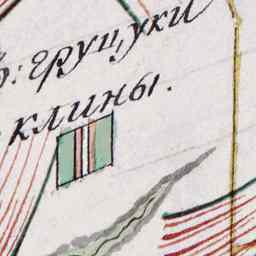 ѣ: груцуки
клины.